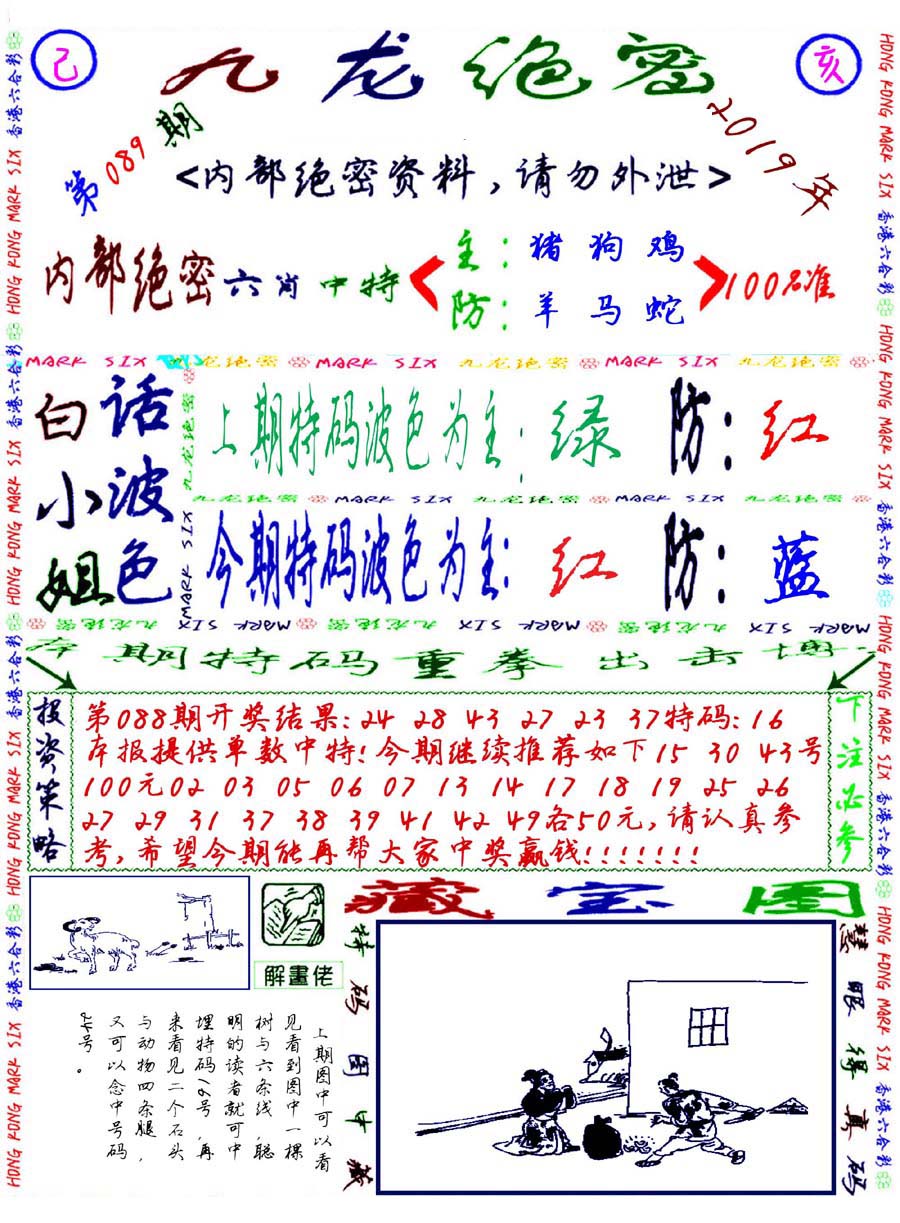 己
九龙绝密
亥
第089期
2019年
<内部绝密资料,请勿外泄>
内部绝密六肖中特
主:猪狗鸡
防:羊马蛇
100%准
MARK SIX 九龙绝密 MARK SIX 九龙绝密 MARK SIX 九龙绝密
白话
小波
姐色
上期特码波色为主:绿 防:红
九龙绝密 MARK SIX 九龙绝密 MARK SIX 九龙绝密
今期特码波色为主:红 防:蓝
九龙绝密 MARK SIX
MARK SIX 九龙绝密 MARK SIX 九龙绝密 MARK SIX 九龙绝密
本期特码重拳出击博
投资策略
第088期开奖结果:24 28 43 27 23 37特码:16
本报提供单数中特!今期继续推荐如下15 30 43号
100元02 03 05 06 07 13 14 17 18 19 25 26
27 29 31 37 38 39 41 42 49各50元,请认真参
考,希望今期能再帮大家中奖赢钱!!!!!!!
下注必参
解畫佬
藏宝图
上期图中可以看
见看到图中一棵
树与六条线,聪
明的读者就可中
埋特码16号,再
来看见二个石头
与动物四条腿,
又可以念中号码
24号。
特码图中藏
慧眼得真码
HONG KONG MARK SIX 香港六合彩 HONG KONG MARK SIX 香港六合彩 HONG KONG MARK SIX 香港六合彩 HONG KONG MARK SIX 香港六合彩
HONG KONG MARK SIX 香港六合彩 HONG KONG MARK SIX 香港六合彩 HONG KONG MARK SIX 香港六合彩 HONG KONG MARK SIX 香港六合彩